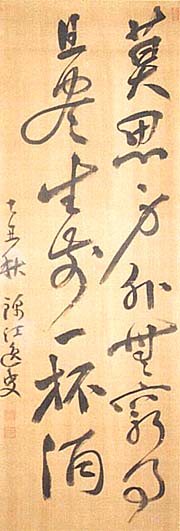 莫思身外無窮事
且盡生前一杯酒
丁丑秋 江逸